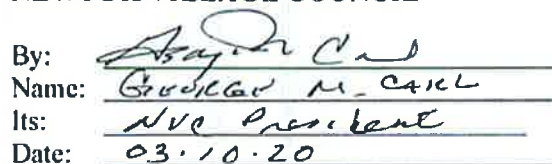 By:
Name: GEORGE M. CARL
Its: NVC President
Date: 03.10.20